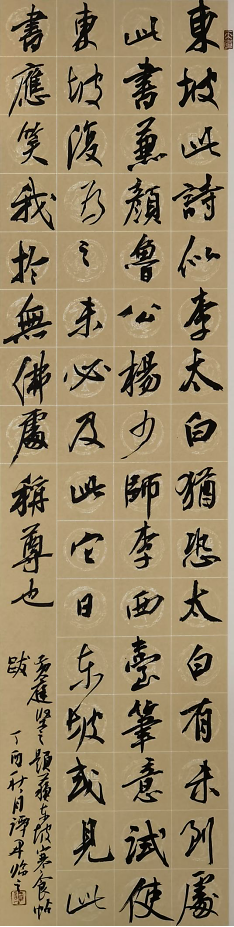 東坡此詩似李太白猶恐太白有未到處
此書兼顏魯公楊少師李西臺筆意試使
東坡復為之未必及此它日東坡或見此
書應笑我於無佛處稱尊也
黃庭堅之題蘇東坡寒食帖
跋
丁酉秋月譚平臨之